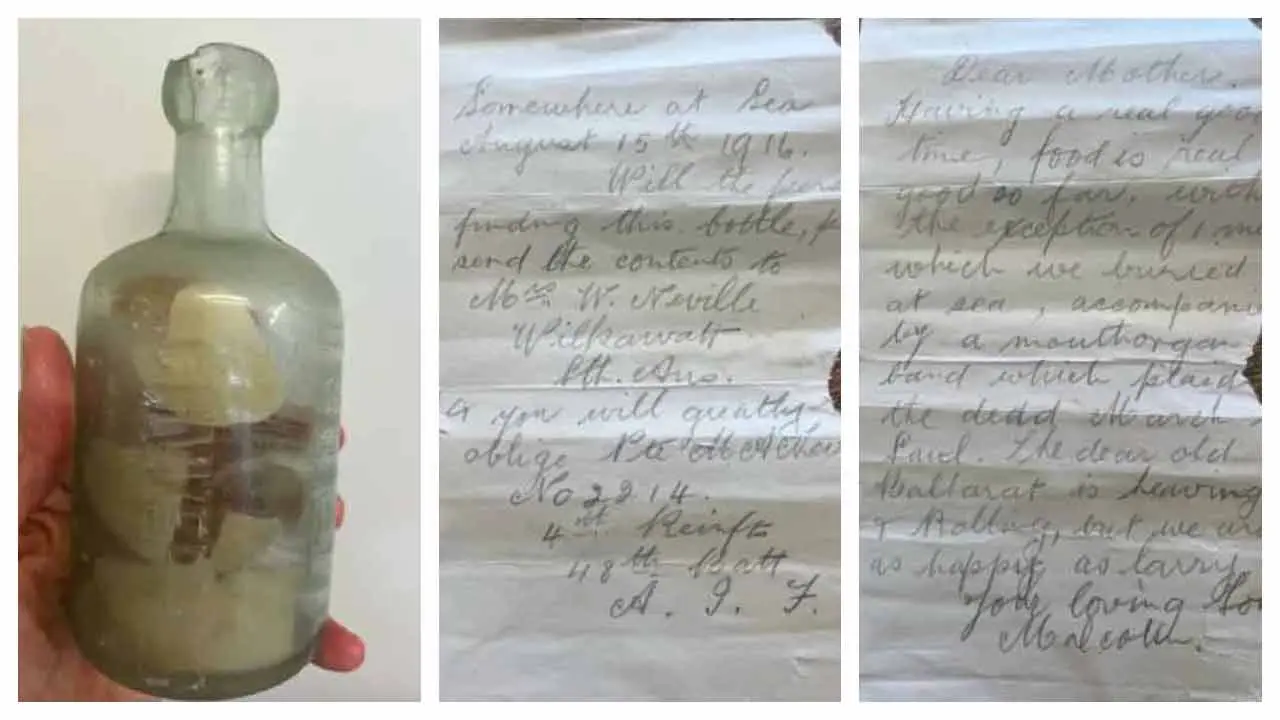 Somewhere at Sea
August 15th 1916.
Will the
finding this bottle,
send the contents to
Mrs W. Neville
Wilkawatt
Sth. Aus.
& you will greatly
oblige Pte
No 2214.
4 Reinft
48th Batt
A. I. F.
Dear Mother.
Having a real goo
time, food is real
good so far, with
the exception of 1 me
which we buried
at sea, accompani
by a mouthorgan
band which plaid
the dead March
Saul. The dear old
Ballarat is heaving
& Rolling, but we are
as happy as larry.
Your loving So
Malcolm.